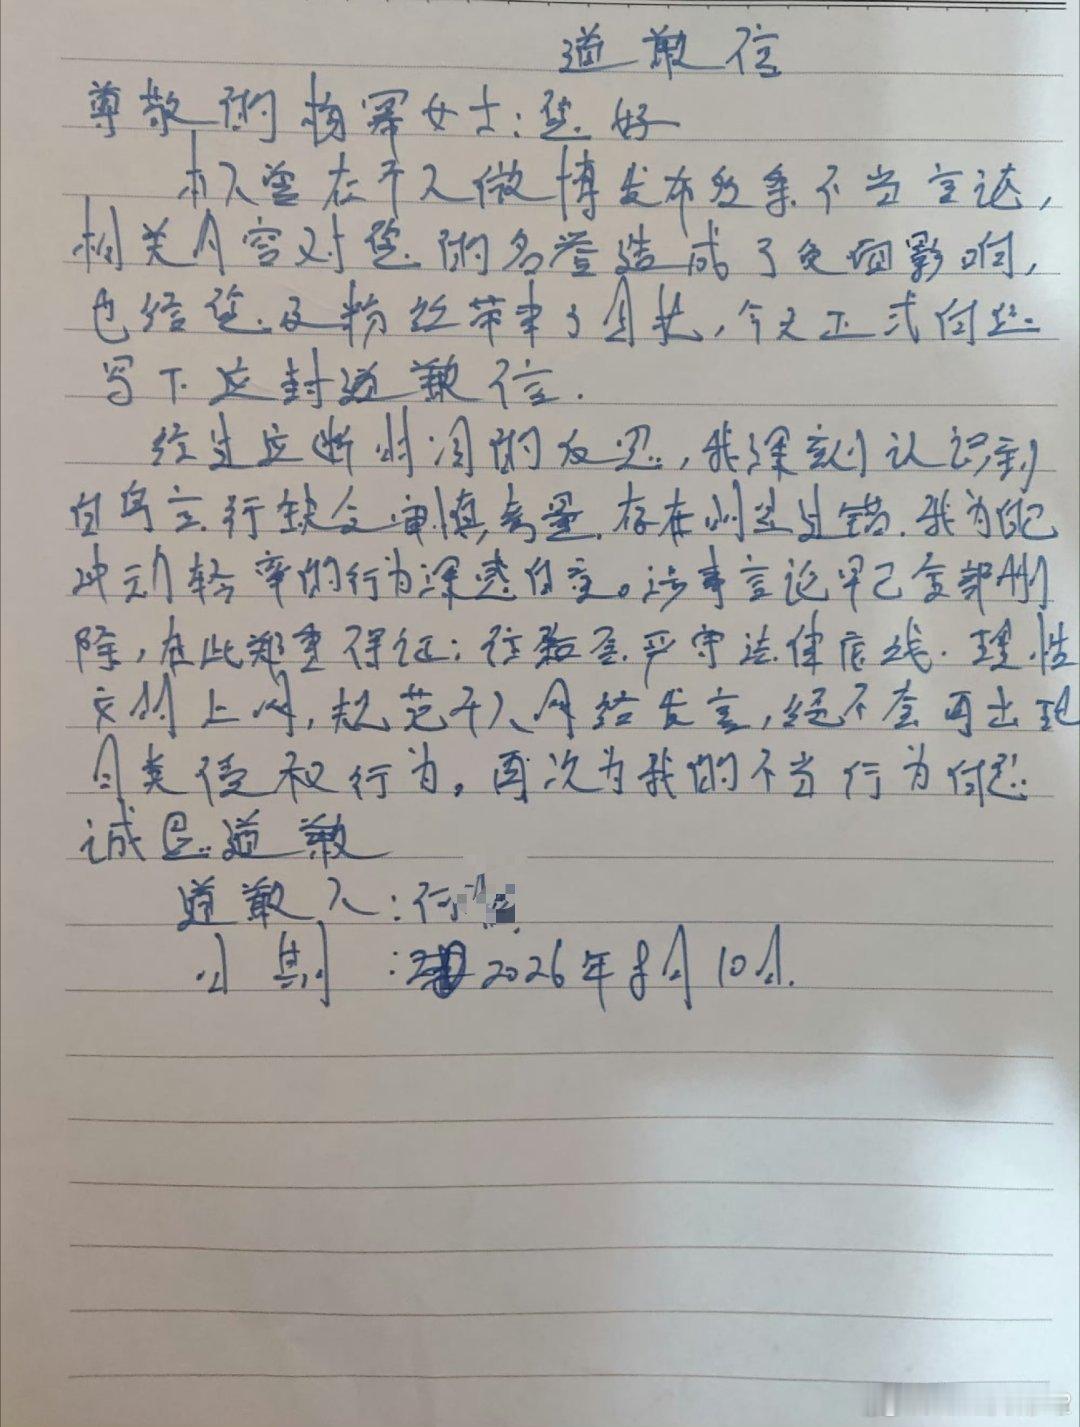 道歉信
尊敬的杨幂女士:您好
本人曾在个人微博发布多条不当言论,
相关内容对您的名誉造成了负面影响,
也给您及粉丝带来了困扰,今天正式向您
写下这封道歉信.
经过这断时间的反思,我深刻认识到
自身言行缺乏审慎考量.存在明显过错.我为自己
冲动轻率的行为深感自责。涉事言论早已全部删
除,在此郑重保证:往后会严守法律底线.理性
文明上网,规范个人网络发言,绝不会再出现
同类侵权行为。再次为我的不当行为向您
诚恳道歉
道歉人:何
日期:2026年8月10日.